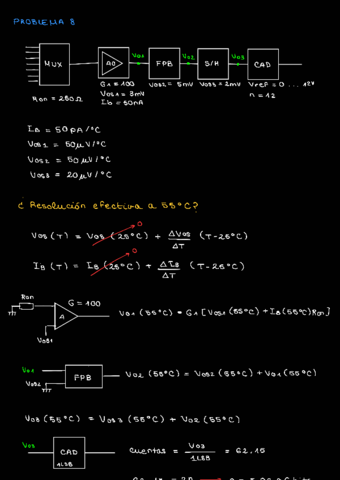 PROBLEMA 8
MUX
AO
Vo1
FPB
Vo2
S/H
Vo3
CAD
Ron = 250Ω
G1 = 100
Vos1 = 3mV
Ib = 50nA
Vos2 = 5mV
Vos3 = 2mV
Vref = 0 ... 12V
n = 12
IB = 50pA/°C
Vos1 = 50μV/°C
Vos2 = 50μV/°C
Vos3 = 20μV/°C
¿Resolución efectiva a 55°C?
Vos (T) = Vos (25°C) + ΔVos/ΔT (T-25°C)
0
IB (T) = IB (25°C) + ΔIB/ΔT (T-25°C)
0
Ron
G = 100
A
Vos1
Vo1 (55°C) = G1 [Vos1 (55°C) + IB (55°C) Ron]
Vo1
Vos2
FPB
Vo2 (55°C) = Vos2 (55°C) + Vo1 (55°C)
Vo3 (55°C) = Vos3 (55°C) + Vo2 (55°C)
Vo3
CAD
1LSB
cuentas = Vo3/1LSB = 62,15